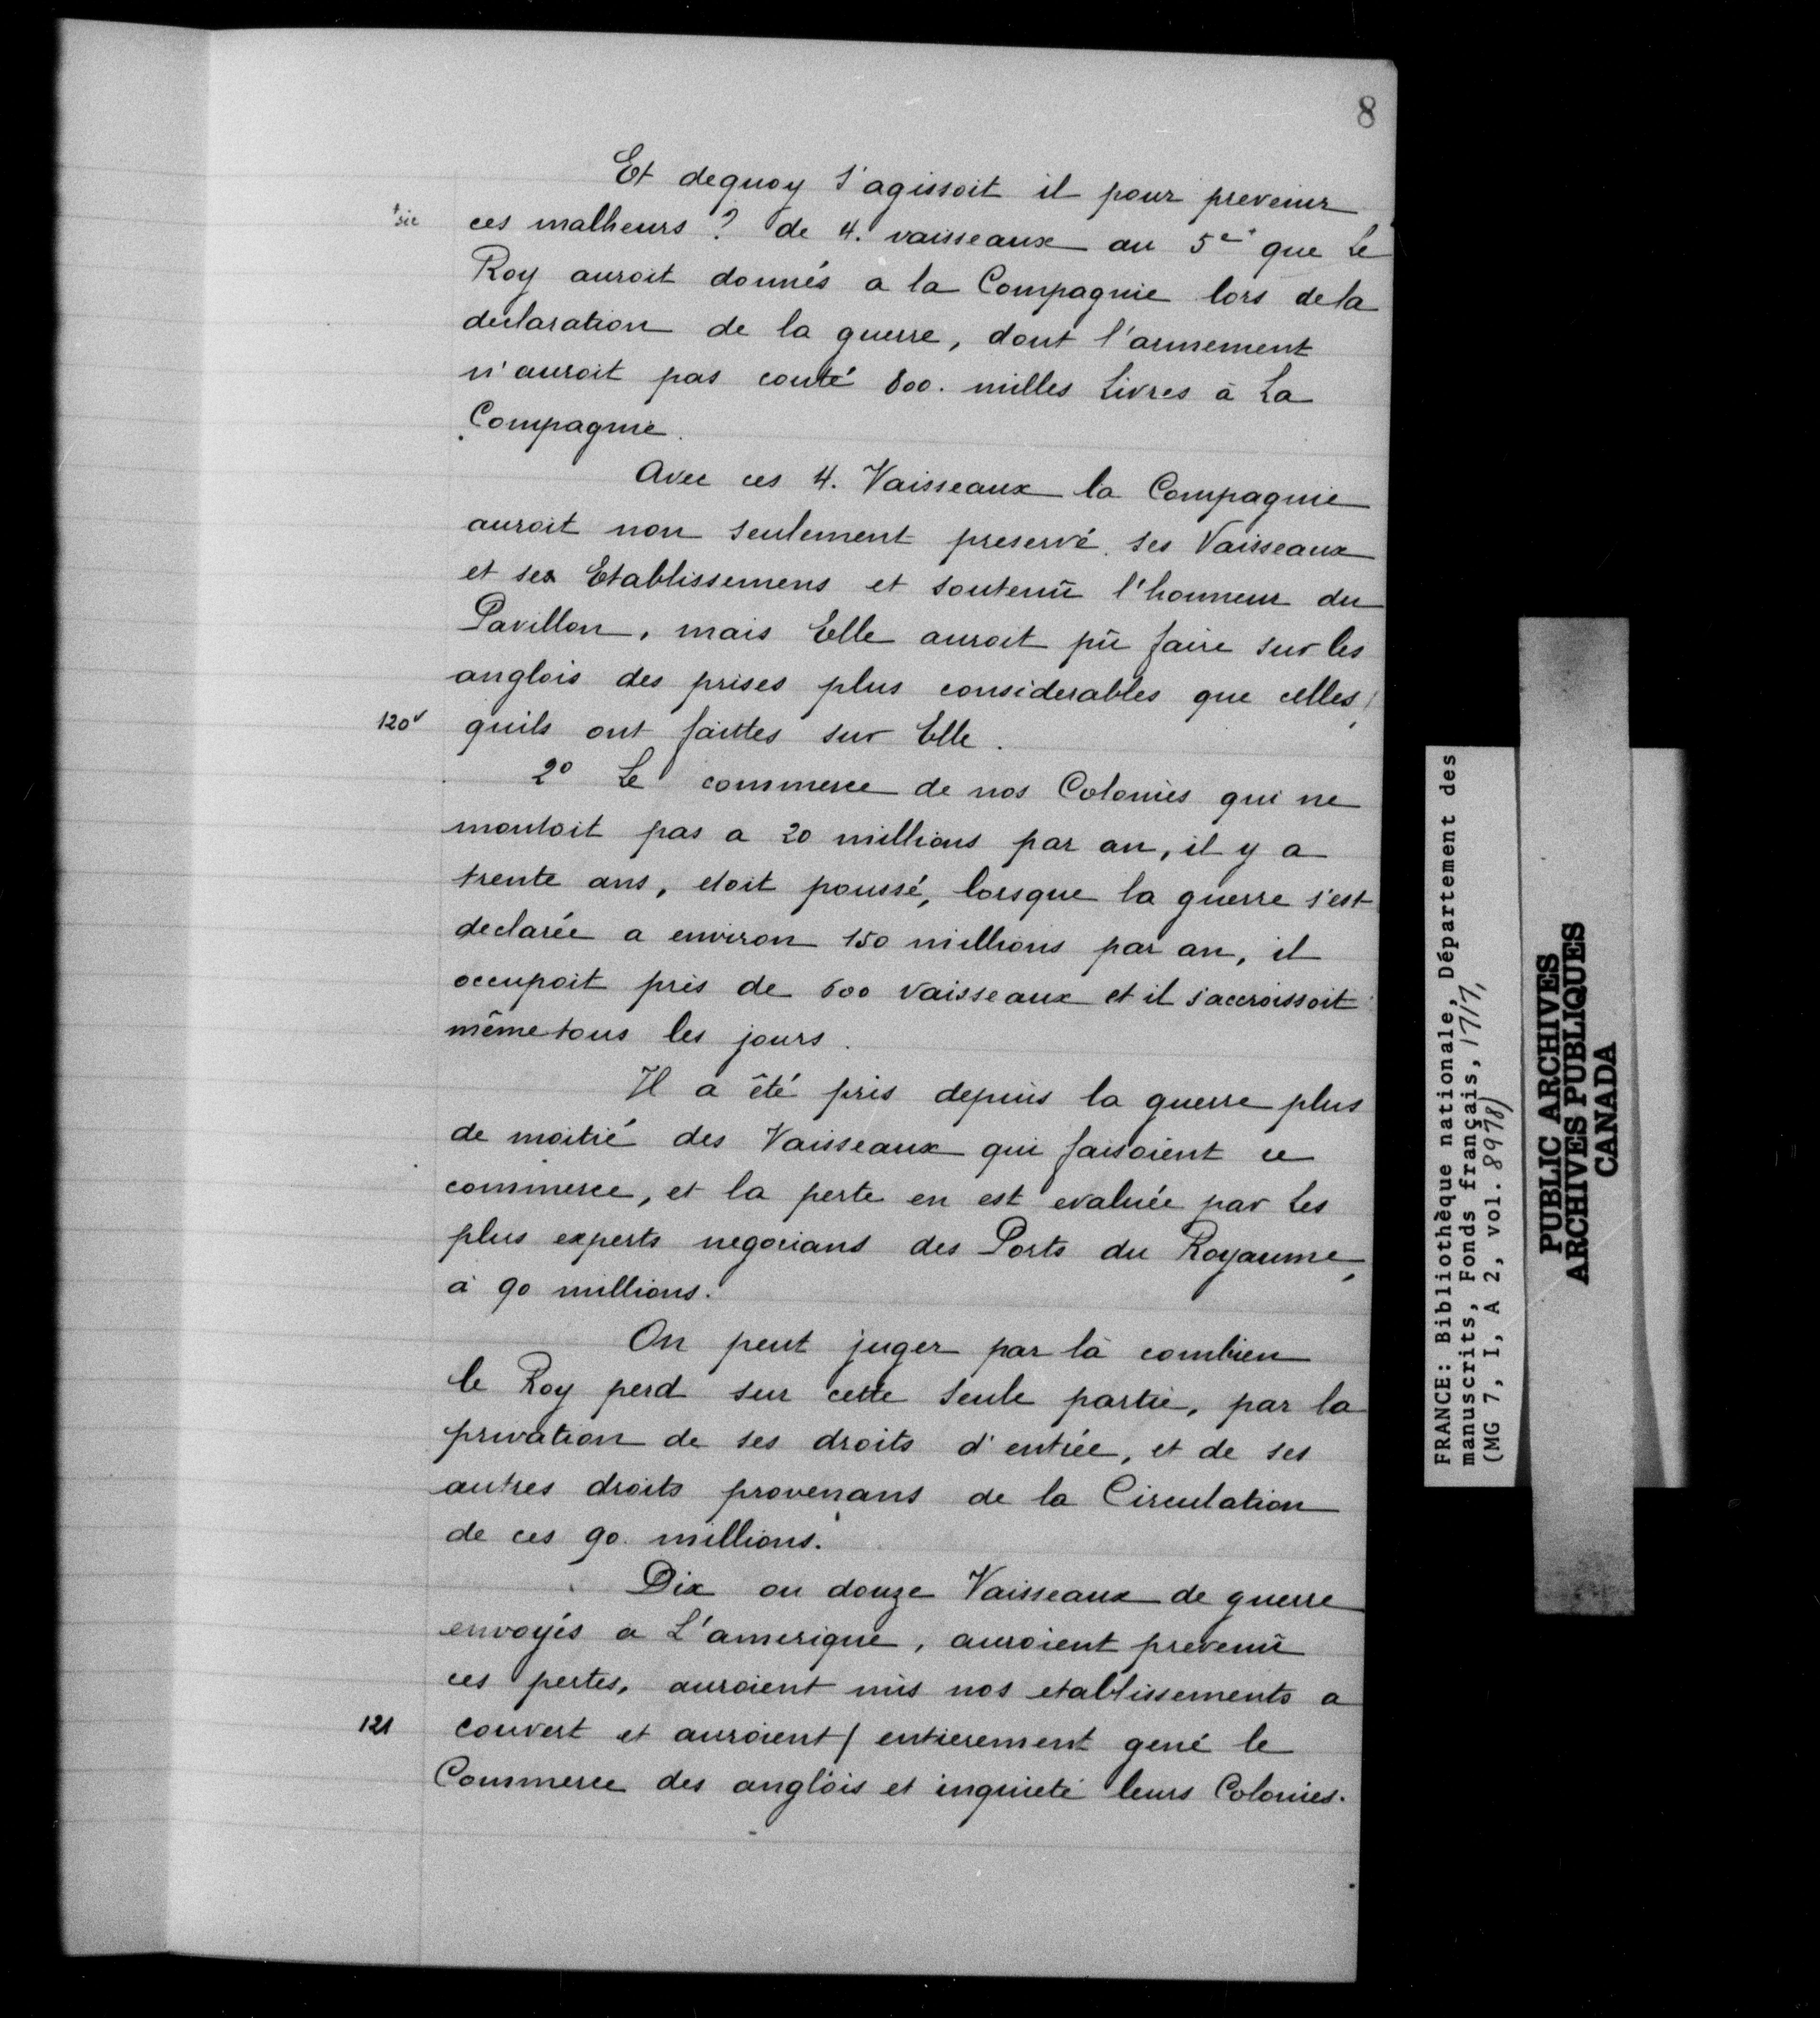 8
Et dequoy s'agissoit il pour prevenir
+sic ces malheurs? de 4. vaisseaux au 5e+ que Le
Roy auroit donnés a la Compagnie lors dela
declaration de la guerre, dont l'armement
n'auroit pas couté 800. milles Livres à La
Compagnie.
Avec ces 4. Vaisseaux la Compagnie
auroit non seulement preservé ses Vaisseaux
et ses Etablissemens et soutenû l'honneur du
Pavillon, mais Elle auroit pû faire sur les
anglois des prises plus considerables que celles /
120v quils ont faittes sur Elle.
2º Le commerce de nos Colonies qui ne
montoit pas a 20 millions par an, il y a
trente ans, etoit poussé, lorsque la guerre s'est
declarée a environ 150 millions par an, il
occupoit près de 600 vaisseaux et il s'accroissoit
même tous les jours.
Il a êté pris depuis la guerre plus
de moitié des Vaisseaux qui faisoient ce
commerce, et la perte en est evaluée par Les
plus experts negocians des Ports du Royaume,
à 90 millions.
On peut juger par là combien
le Roy perd sur cette seule partie, par la
privation de ses droits d'entrée, et de ses
autres droits provenans de la Circulation
de ces 90. millions.
Dix ou douze Vaisseaux de guerre
envoyés a L'amerique, auroient prevenû
ces pertes, auroient mis nos etablissements a
121 couvert et auroient / entierement gené le
Commerce des anglois et inquieté leurs Colonies.
FRANCE: Bibliothèque nationale, Département des
manuscrits, Fonds français, 1717,
(MG 7, I, A 2, vol. 8978)
PUBLIC ARCHIVES
ARCHIVES PUBLIQUES
CANADA